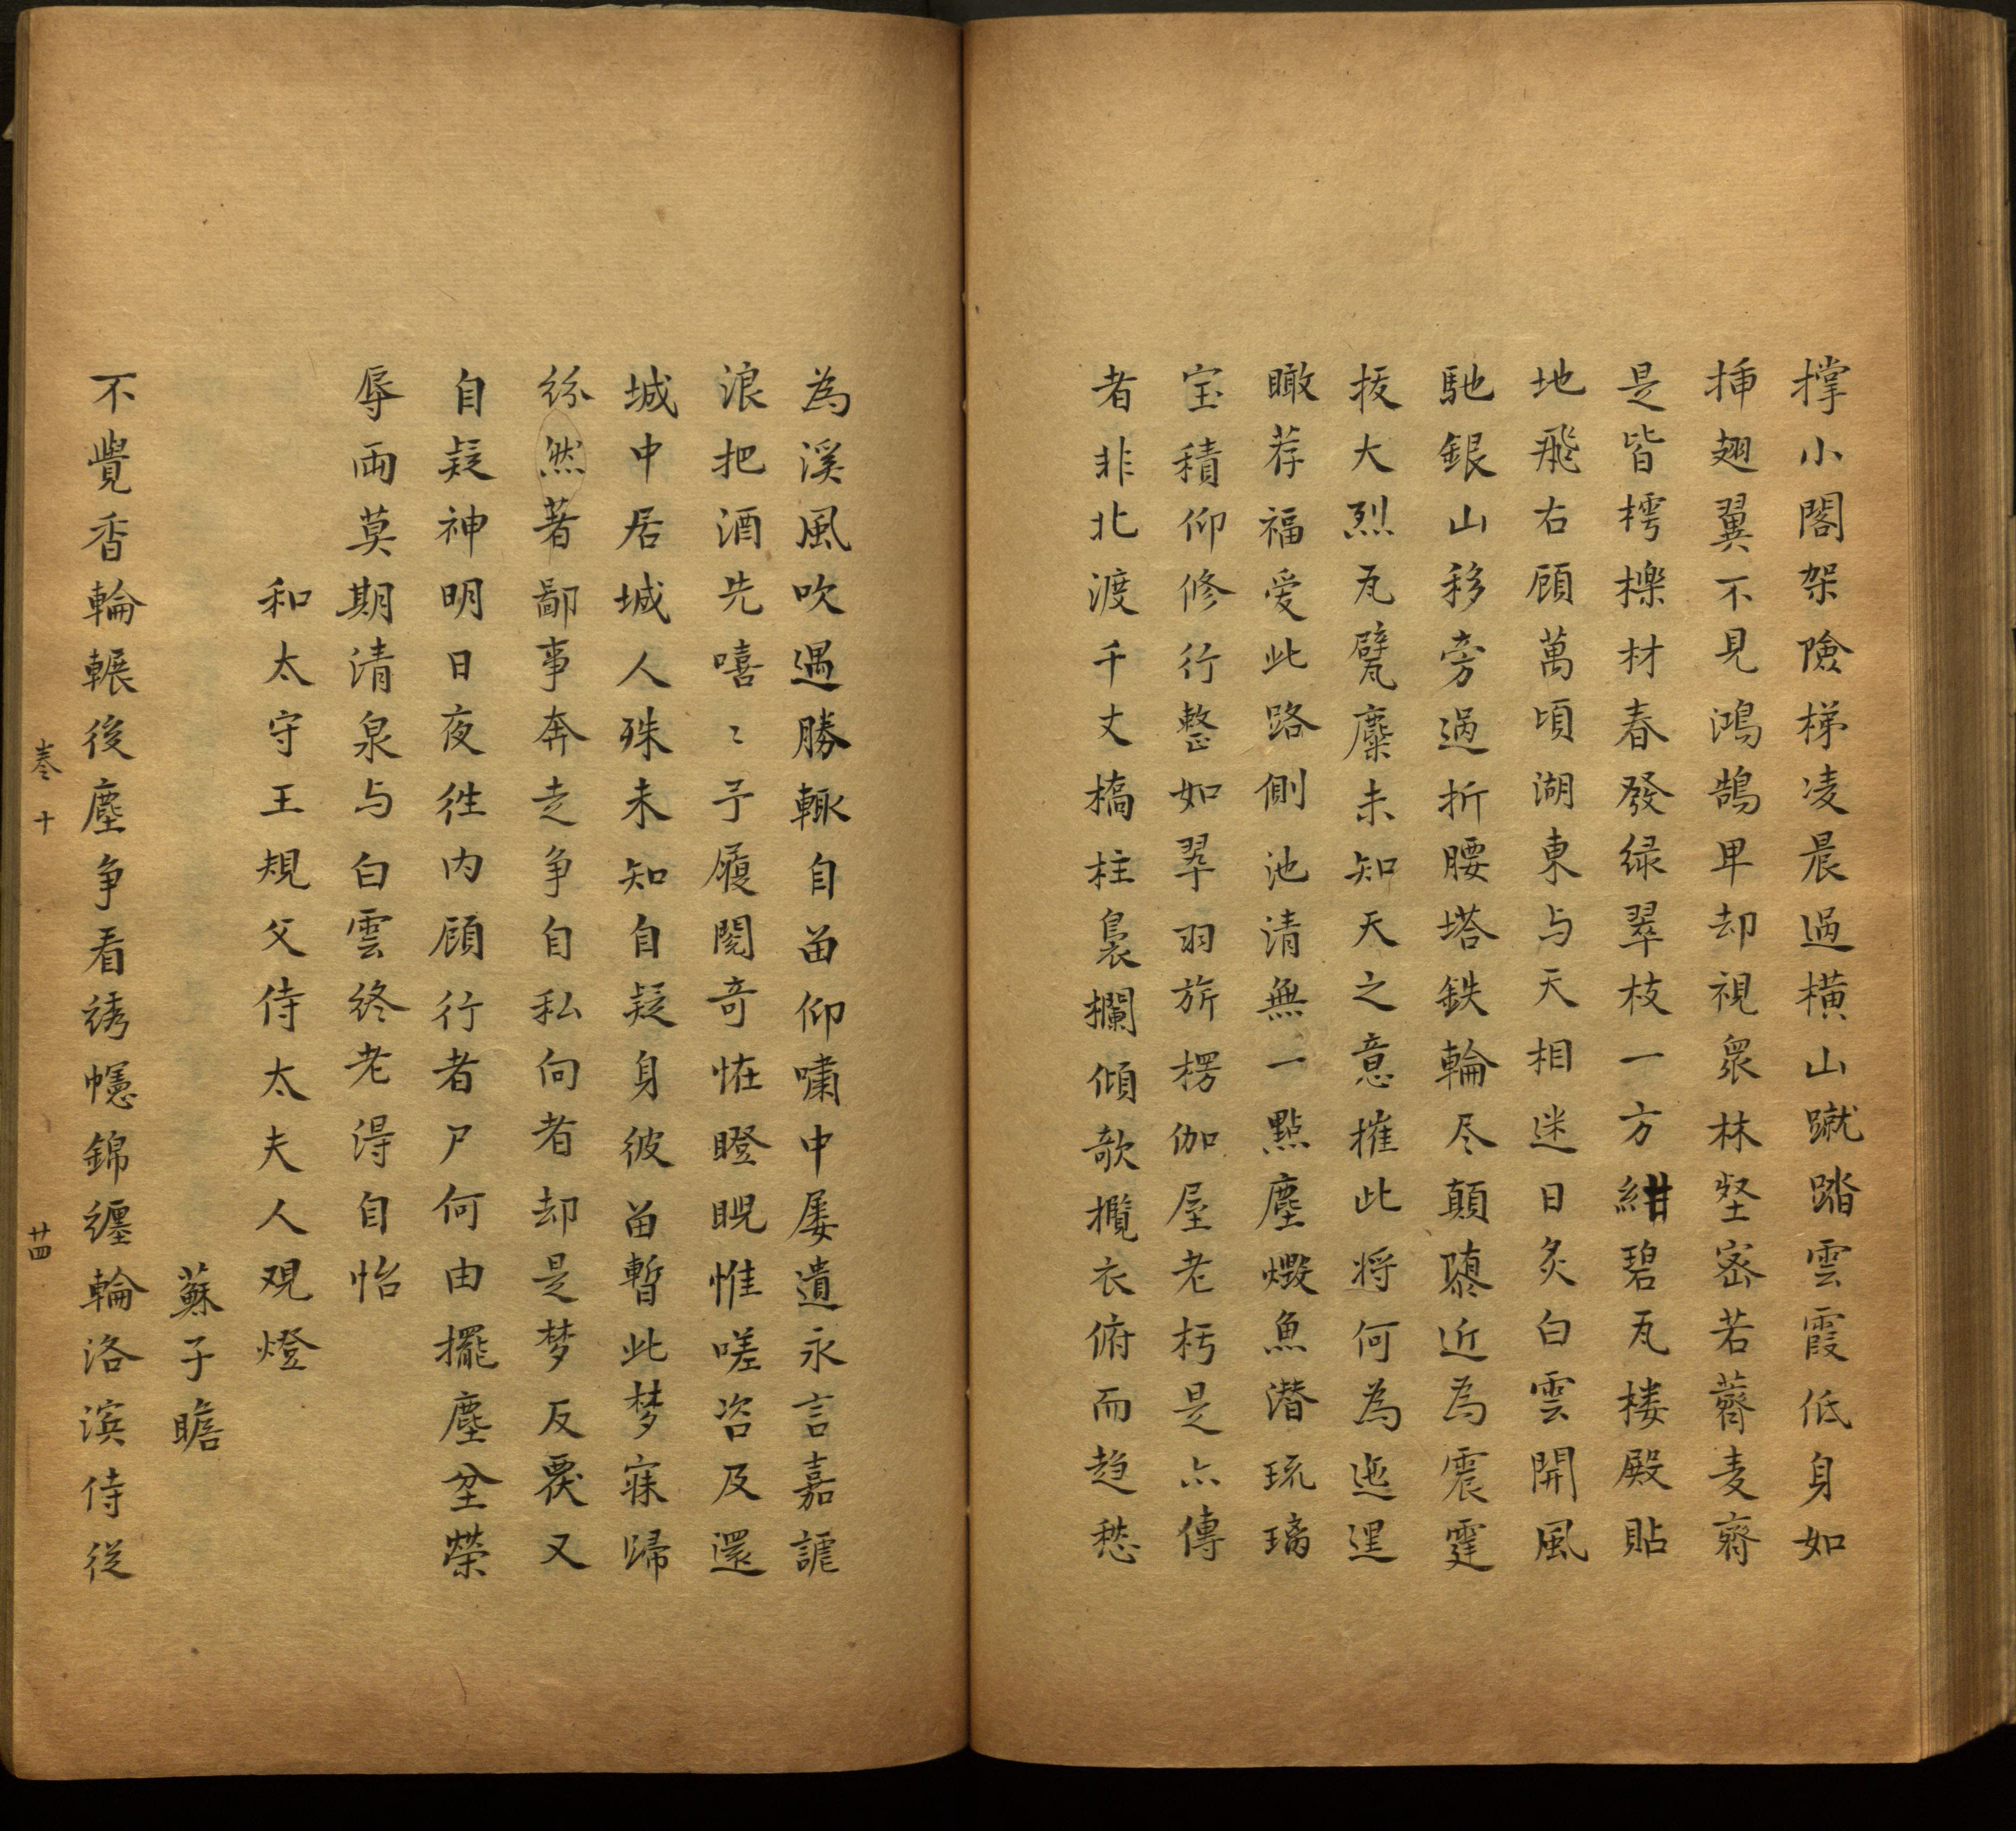 撑小閣架險梯凌晨過橫山蹴踏雲霞低身如
揷翅翼不見鴻鵠卑却視衆林堅密若薺麦齊
是皆樗櫟材春發緑翠枝一方紺碧瓦楼殿貼
地飛右顧萬頃湖東与天相迷日炙白雲開風
馳銀山移旁過折腰塔鉄輪尽顛隳近為震霆
拔大烈瓦甓麋未知天之意摧此将何為迤逞
瞰荐福爱此路側池清無一點塵燬魚潜琉璃
宝積仰修行整如翠羽旂楞伽屋老杇是亦傳
者非北渡千丈橋柱裊攔傾欹攬衣俯而趋愁
為溪風吹遇勝輙自畄仰嘯中屡遺永言嘉謔
浪把酒先嘻〻予履閲竒恠瞪睨惟嗟咨及還
城中居城人殊未知自疑身彼畄暫此梦寐歸
紛然著鄙事奔走争自私向者却是梦反覆又
自疑神明日夜徃内顧行者尸何由擺塵坌榮
辱兩莫期清泉与白雲終老淂自怡
和太守王規父侍太夫人观燈
蘇子瞻
不覺香輪輾後塵争看綉幰錦纏輪洛滨侍從
卷十 廿四